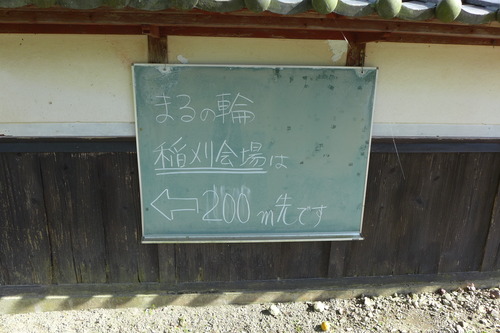 まるの輪
稲刈会場は
← 200m先です